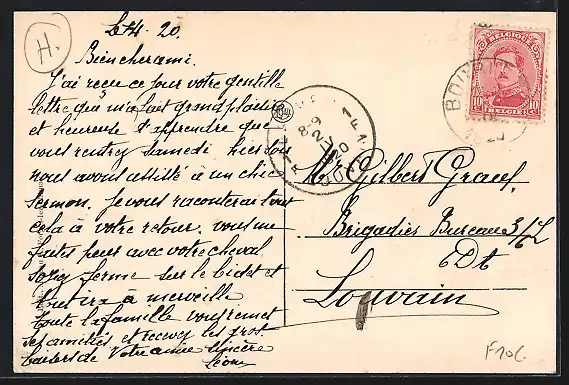 Le 4. 20.
H.
Bien cher ami.
J'ai reçu ce jour votre gentille
lettre qui m'a fait grand plaisir
et heureuse d'apprendre que
vous rentrez samedi hier soir
nous avons assisté à un chic
sermon. je vous raconterai tout
cela à votre retour. vous me
faites peur avec votre cheval
soyez ferme sur le bidet et
tout ira à merveille
toute la famille vous remet
ses amitiés, et recevez les gros
baisers de Votre amie sincère
Léona
BELGIQUE
10 10
BELGIË
1920
Mr Gilbert Graus,
Brigadier Bureau 3/Z
Dt
Louvain
F106